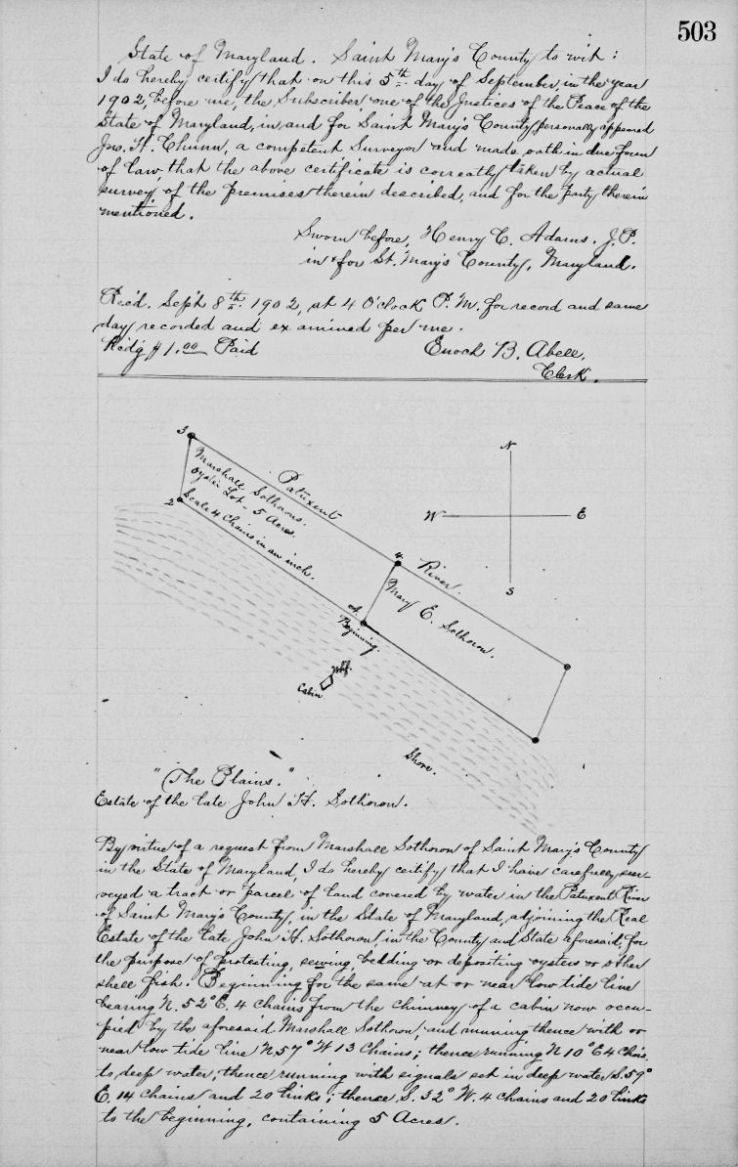 503
State of Maryland. Saint Mary's County to wit:
I do hereby certify that on this 5th day of September, in the year
1902, before me, the Subscriber one of the Justices of the Peace of the
State of Maryland, in and for Saint Mary's County personally appeared
Jno. H. Chunn, a competent Surveyor and made oath in due form
of law, that the above certificate is correctly taken by actual
survey of the premises therein described, and for the party therein
mentioned.
Sworn before, Henry C. Adams. J.P.
in & for St. Mary's County, Maryland.
Rec'd. Sept 8th. 1902, at 4 O'clock P.M. for record and same
day recorded and examined per me.
Rcd'g $1.00 Paid
Enoch B. Abell,
Clerk.
3
Marshall Sothoron.
Oyster Lot - 5 Acres.
Scale 4 Chains in an inch.
2
Patuxent
River.
4.
Mary E. Sothoron.
Beginning.
N
W
E
S
Cabin
Shore.
"The Plains."
Estate of the late John H. Sothoron.
By virtue of a request from Marshall Sothoron of Saint Mary's County
in the State of Maryland, I do hereby certify that I have carefully sur-
veyed a tract or parcel of land covered by water in the Patuxent River
of Saint Mary's County, in the State of Maryland, adjoining the Real
Estate of the late John H. Sothoron, in the County and State aforesaid, for
the purpose of protecting, sowing, bedding or depositing oysters or other
shell fish. Beginning for the same at or near low tide line
bearing N. 52° E. 4 chains from the chimney of a cabin now occu-
pied by the aforesaid Marshall Sothoron, and running thence with or
near low tide line N 57° W 13 Chains; thence running N 10° E 4 Chns.
to deep water, thence running with signals set in deep water S. 59°
E. 14 Chains and 20 links; thence S. 32° W. 4 chains and 20 links
to the beginning, containing 5 Acres.